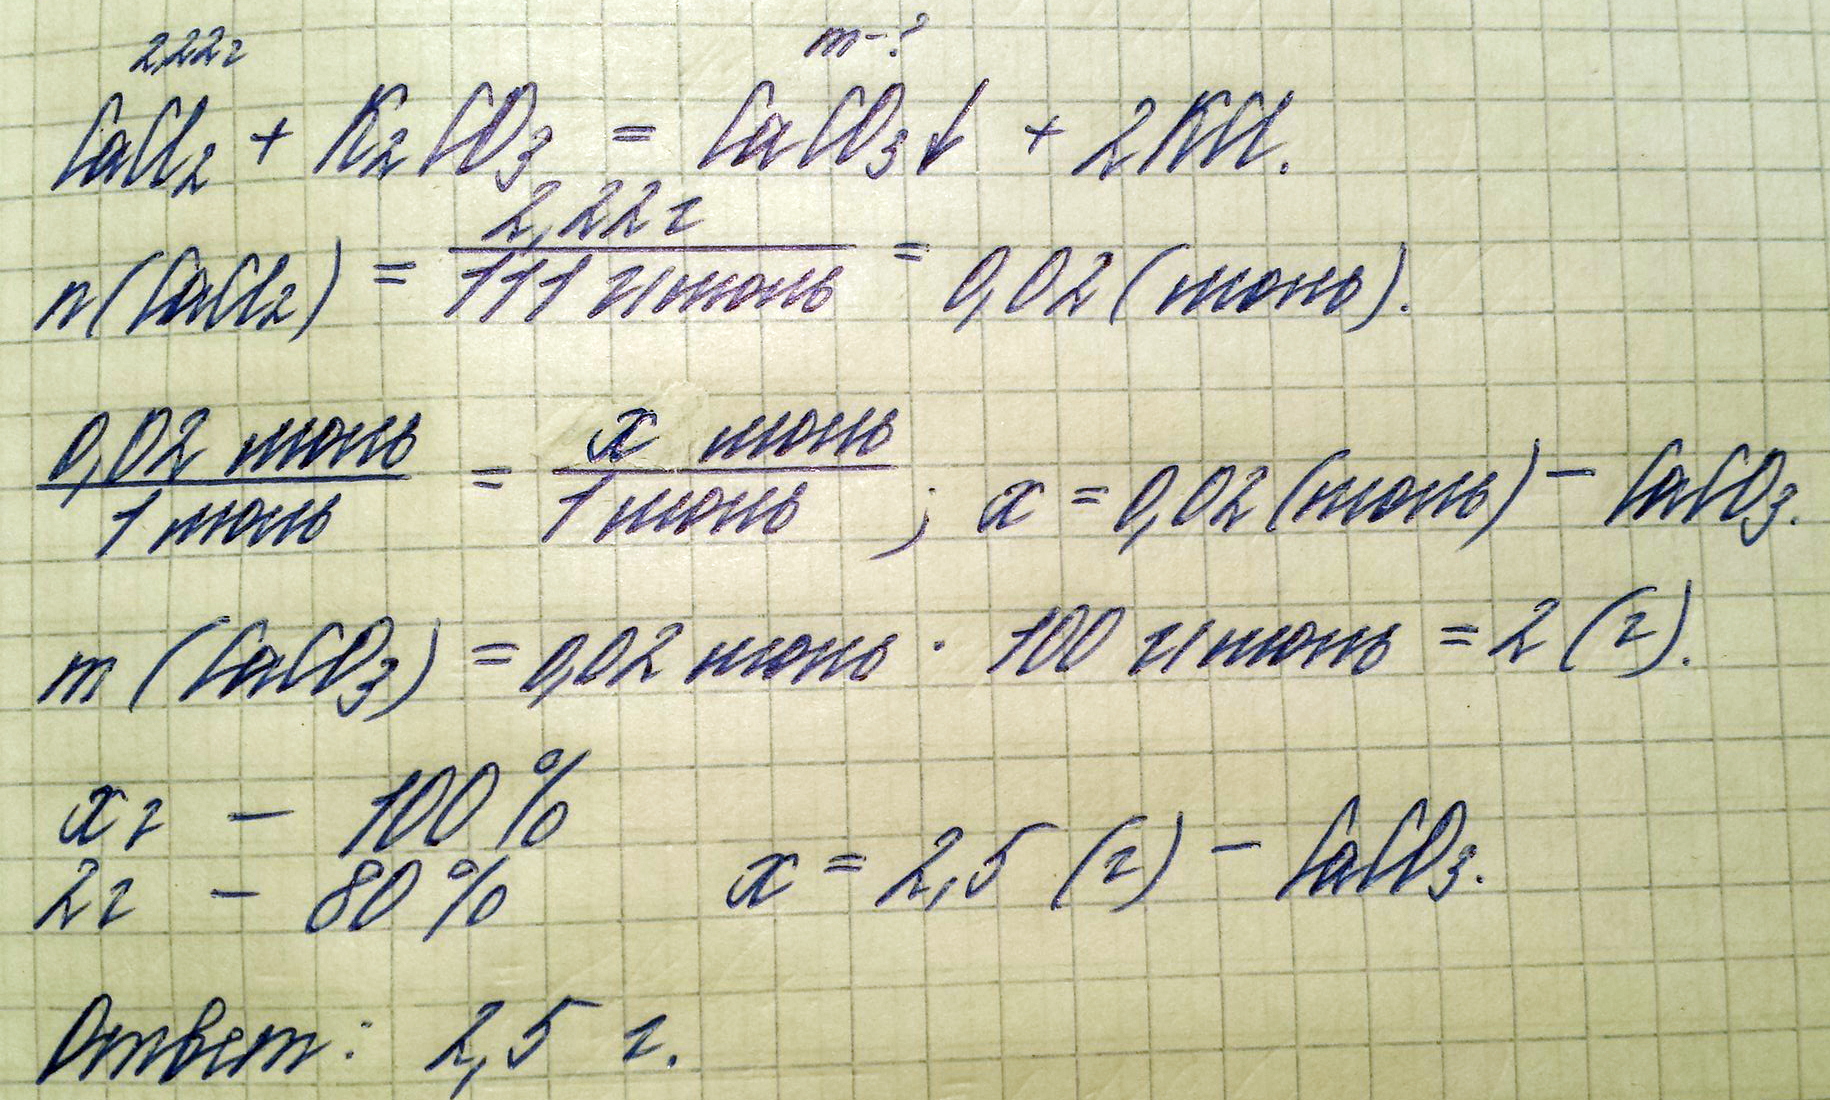 2,22г m-?
CaCl₂ + K₂CO₃ = CaCO₃↓ + 2KCl.
n(CaCl₂) = 2,22г / 111 г/моль = 0,02 (моль).
0,02 моль / 1 моль = x моль / 1 моль ; x = 0,02 (моль) – CaCO₃.
m (CaCO₃) = 0,02 моль · 100 г/моль = 2 (г).
xг – 100%
2г – 80% x = 2,5 (г) – CaCO₃.
Ответ: 2,5 г.